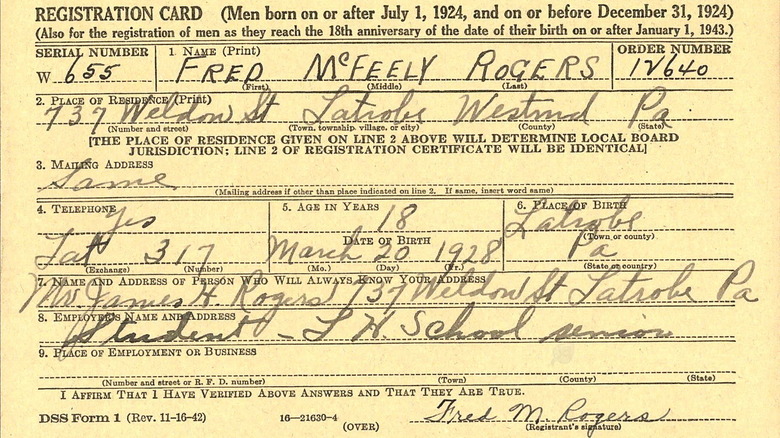 REGISTRATION CARD (Men born on or after July 1, 1924, and on or before December 31, 1924)
(Also for the registration of men as they reach the 18th anniversary of the date of their birth on or after January 1, 1943.)
SERIAL NUMBER 1. NAME (Print) ORDER NUMBER
W 655 FRED McFEELY ROGERS 12640
(First) (Middle) (Last)
2. PLACE OF RESIDENCE (Print)
737 Weldon St Latrobe Westmd Pa
(Number and street) (Town, township, village, or city) (County) (State)
[THE PLACE OF RESIDENCE GIVEN ON LINE 2 ABOVE WILL DETERMINE LOCAL BOARD
JURISDICTION; LINE 2 OF REGISTRATION CERTIFICATE WILL BE IDENTICAL]
3. MAILING ADDRESS
Same
(Mailing address if other than place indicated on line 2. If same, insert word same)
4. TELEPHONE 5. AGE IN YEARS 6. PLACE OF BIRTH
Yes 18 Latrobe
DATE OF BIRTH (Town or county)
Lat 317 March 20 1928 Pa
(Exchange) (Number) (Mo.) (Day) (Yr.) (State or country)
7. NAME AND ADDRESS OF PERSON WHO WILL ALWAYS KNOW YOUR ADDRESS
James H. Rogers 737 Weldon St Latrobe Pa
8. EMPLOYER'S NAME AND ADDRESS
Student - L H. School senior
9. PLACE OF EMPLOYMENT OR BUSINESS
(Number and street or R. F. D. number) (Town) (County) (State)
I AFFIRM THAT I HAVE VERIFIED ABOVE ANSWERS AND THAT THEY ARE TRUE.
DSS Form 1 (Rev. 11-16-42) 16—21630-4 Fred M. Rogers
(OVER) (Registrant's signature)